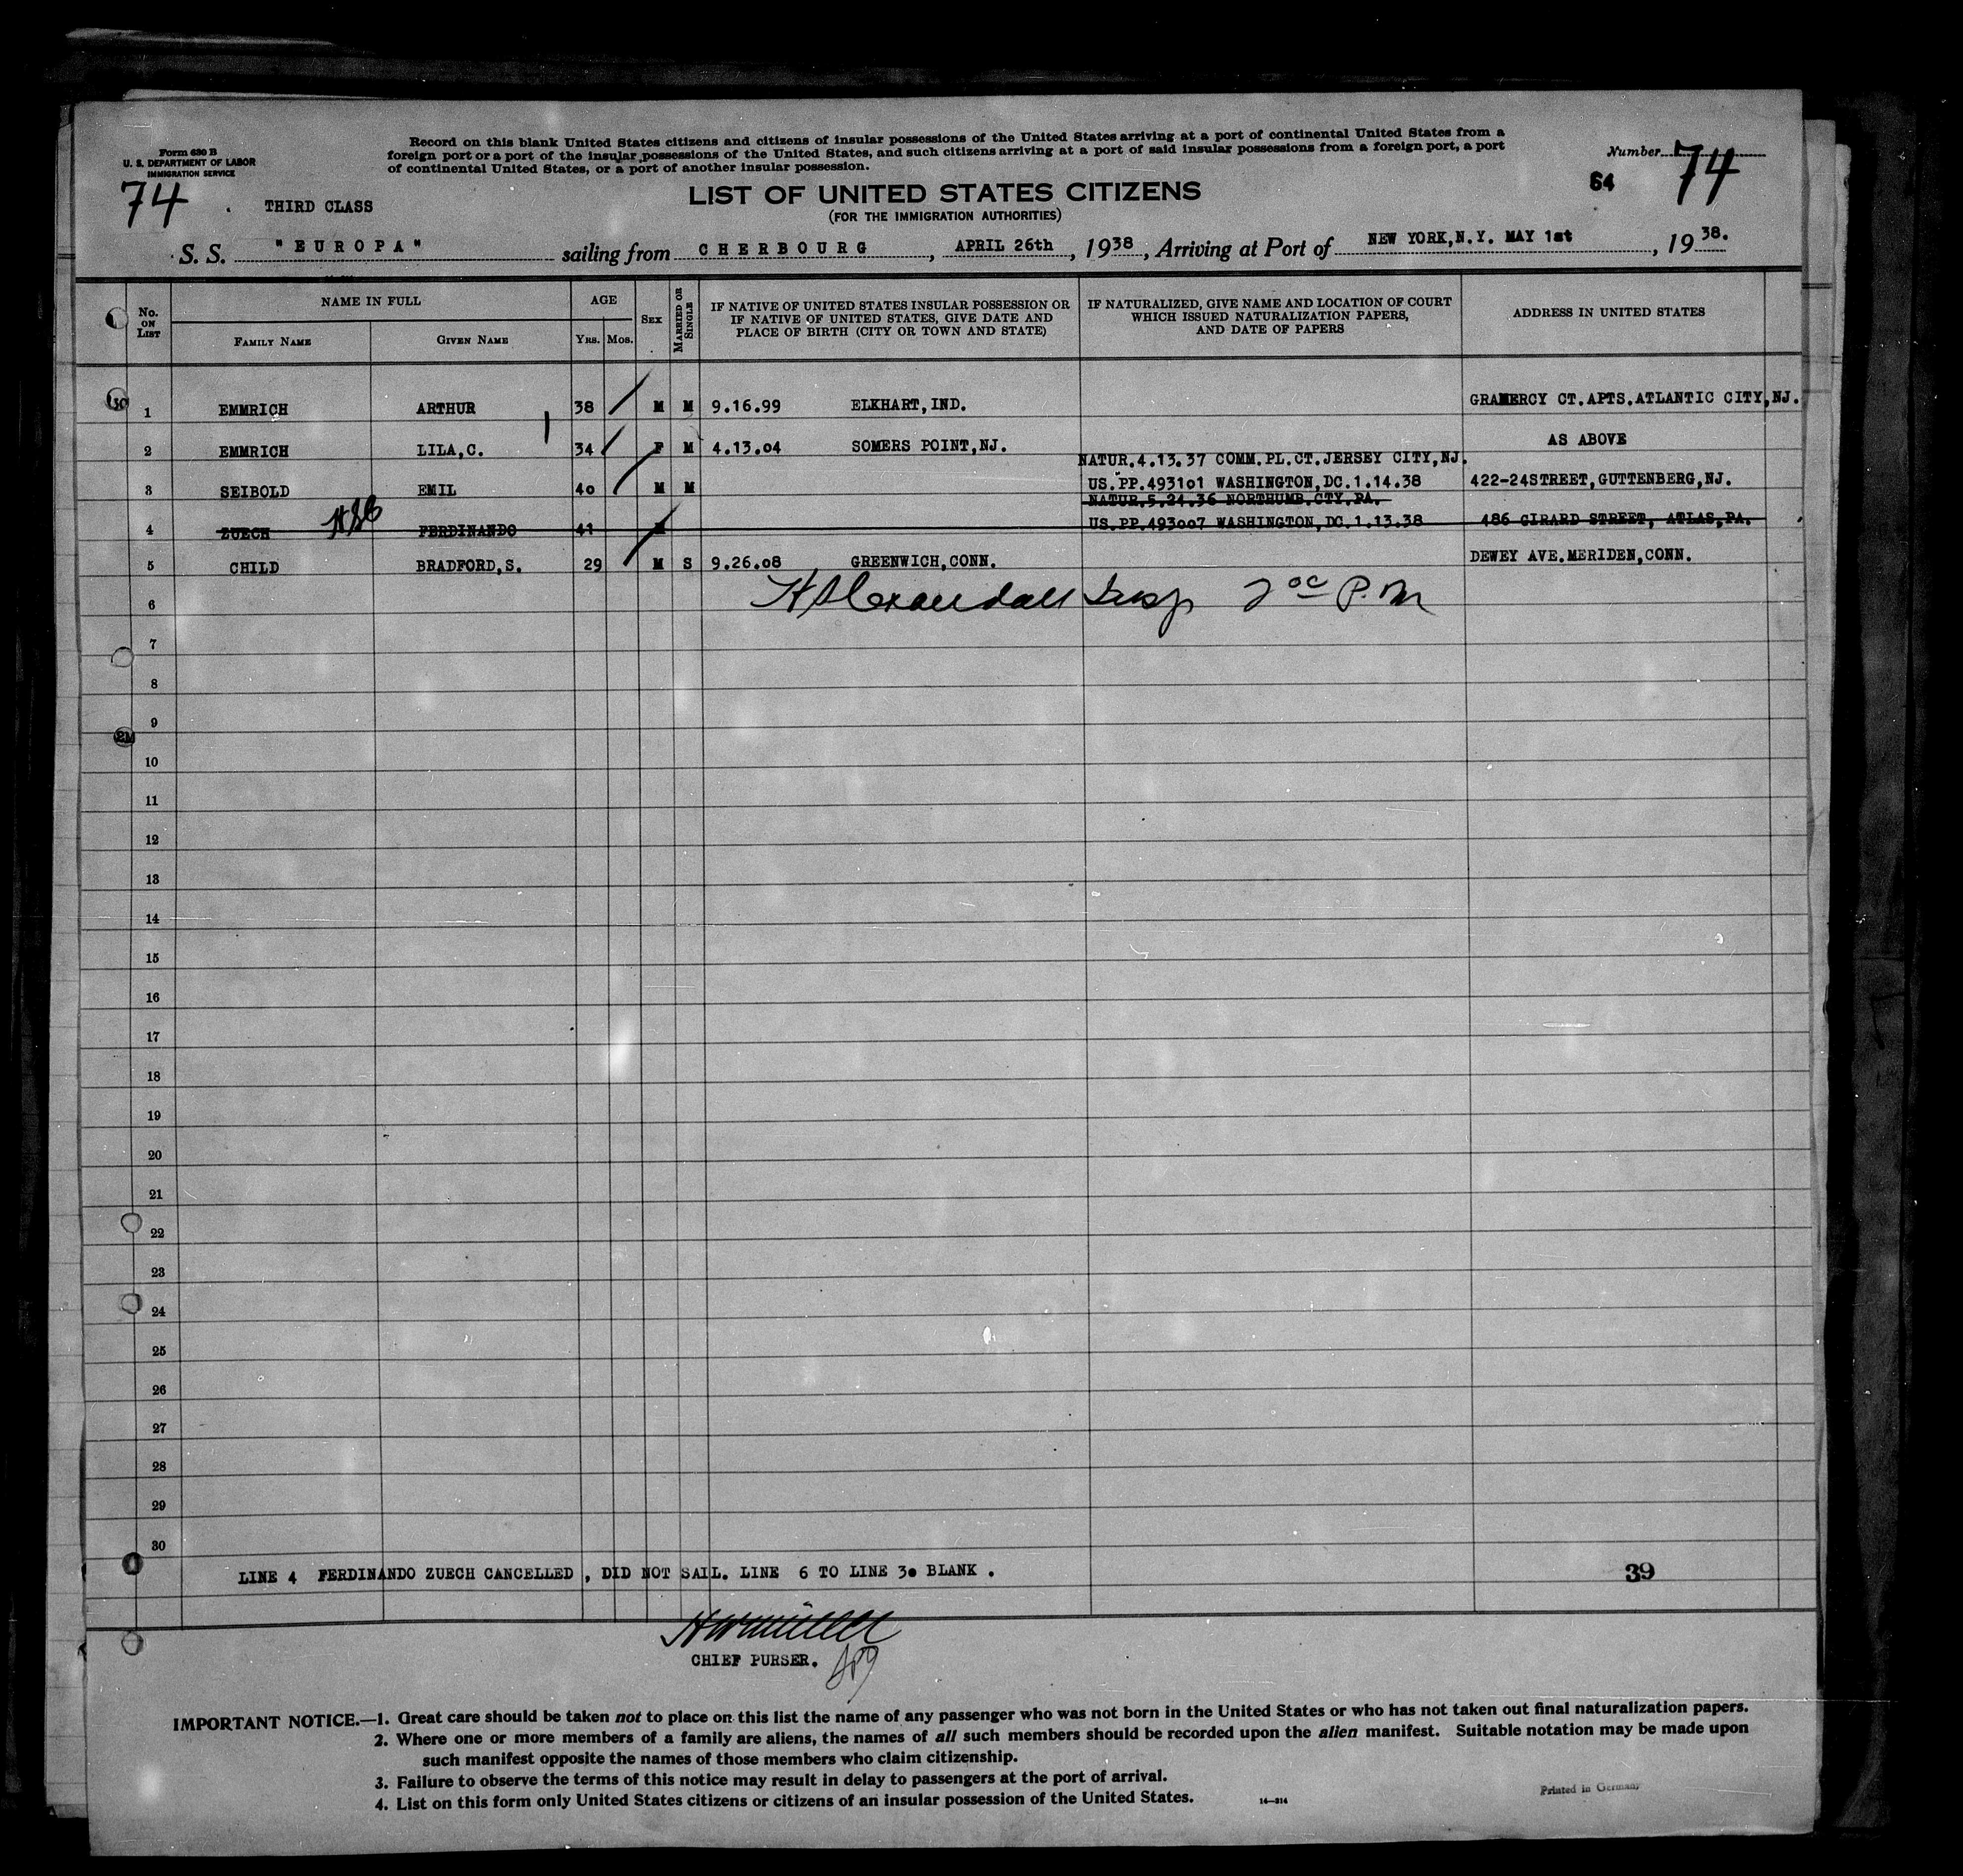 Form 630 B
U. S. DEPARTMENT OF LABOR
IMMIGRATION SERVICE
Record on this blank United States citizens and citizens of insular possessions of the United States arriving at a port of continental United States from a
foreign port or a port of the insular possessions of the United States, and such citizens arriving at a port of said insular possessions from a foreign port, a port
of continental United States, or a port of another insular possession.
Number 74
64
74
THIRD CLASS
LIST OF UNITED STATES CITIZENS
(FOR THE IMMIGRATION AUTHORITIES)
S. S. "EUROPA" sailing from CHERBOURG, APRIL 26th, 1938, Arriving at Port of NEW YORK,N.Y. MAY 1st, 1938.
No. ON LIST
NAME IN FULL
FAMILY NAME
GIVEN NAME
AGE
YRS.
MOS.
SEX
MARRIED OR SINGLE
IF NATIVE OF UNITED STATES INSULAR POSSESSION OR
IF NATIVE OF UNITED STATES, GIVE DATE AND
PLACE OF BIRTH (CITY OR TOWN AND STATE)
IF NATURALIZED, GIVE NAME AND LOCATION OF COURT
WHICH ISSUED NATURALIZATION PAPERS,
AND DATE OF PAPERS
ADDRESS IN UNITED STATES
30
1 EMMRICH ARTHUR 38 M M 9.16.99 ELKHART,IND. GRAMERCY CT.APTS.ATLANTIC CITY,NJ.
2 EMMRICH LILA,C. 34 F M 4.13.04 SOMERS POINT,NJ. AS ABOVE
NATUR.4.13.37 COMM.PL.CT.JERSEY CITY,NJ.
3 SEIBOLD EMIL 40 M M US.PP.493101 WASHINGTON,DC.1.14.38 422-24STREET,GUTTENBERG,NJ.
NATUR.5.24.36 NORTHUMB.CTY.PA.
4 ZUECH FERDINANDO 41 M US.PP.493007 WASHINGTON,DC.1.13.38 486 GIRARD STREET, ATLAS,PA.
5 CHILD BRADFORD,S. 29 M S 9.26.08 GREENWICH,CONN. DEWEY AVE.MERIDEN,CONN.
6 Insp 2 oo P.M
7
8
9
10
11
12
13
14
15
16
17
18
19
20
21
22
23
24
25
26
27
28
29
30
LINE 4 FERDINANDO ZUECH CANCELLED , DID NOT SAIL. LINE 6 TO LINE 30 BLANK .
39
CHIEF PURSER.
IMPORTANT NOTICE.—1. Great care should be taken not to place on this list the name of any passenger who was not born in the United States or who has not taken out final naturalization papers.
2. Where one or more members of a family are aliens, the names of all such members should be recorded upon the alien manifest. Suitable notation may be made upon
such manifest opposite the names of those members who claim citizenship.
3. Failure to observe the terms of this notice may result in delay to passengers at the port of arrival.
4. List on this form only United States citizens or citizens of an insular possession of the United States.
14—314
Printed in Germany